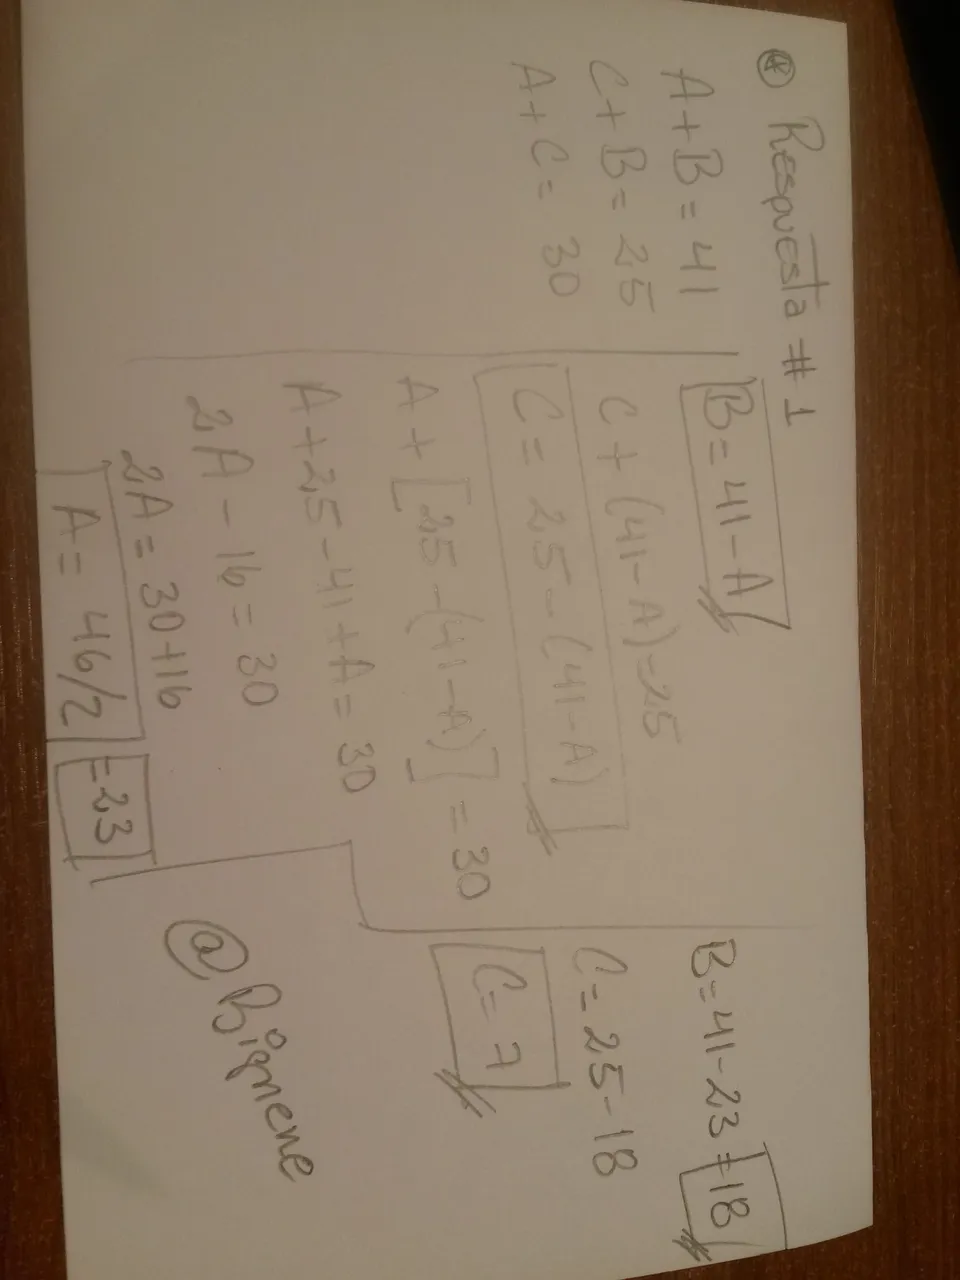 * Respuesta # 1
A+B = 41
C+B = 25
A+C = 30
B = 41-A
C + (41-A)=25
C = 25-(41-A)
A+[25-(41-A)] = 30
A+25-41+A = 30
2A-16 = 30
2A = 30+16
A = 46/2 =23
B=41-23=18
C=25-18
C=7
@Bigmene